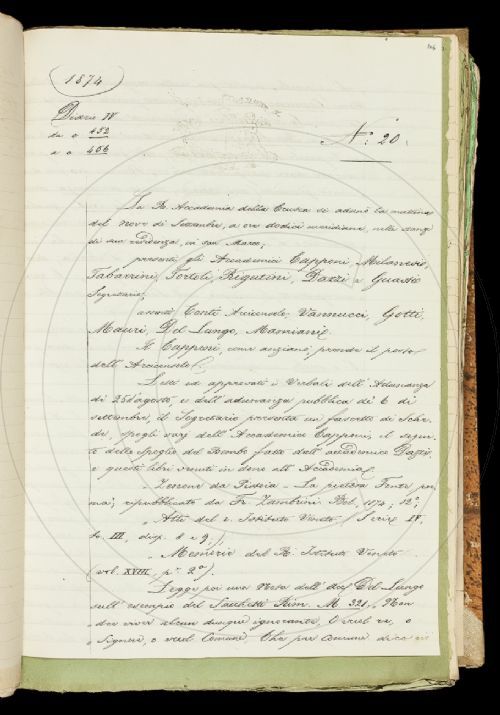 1874
Diario IV
da c. 452
a c. 456
N.° 20.
La R. Accademia della Crusca si adunò la mattina
del nove di Settembre, a ore dodici meridiane, nelle stanze
di sua residenza, in san Marco,
presenti gli Accademici Capponi, Milanesi,
Tabarrini, Tortoli, Rigutini, Dazzi e Guasti
Segretario;
assenti Conti Arciconsolo, Vannucci, Gotti,
Mauri, Del Lungo, Mamiani.
Il Capponi, come anziano, prende il posto
dell'Arciconsolo.
Letti ed approvati i Verbali dell'Adunanza
di 25 d'agosto, e dell'adunanza pubblica di 6 di
settembre, il Segretario presenta un fascetto di Sche-
de, spogli varj dell'Accademico Capponi, il segui-
to dello spoglio del Bembo fatto dall'accademico Dazzi,
e questi libri venuti in dono all'Accademia:
Zenone da Pistoia - La pietosa Fonte, poe-
ma, ripubblicato da Fr. Zambrini. Bol., 1874, 12°;
Atti del r. Istituto Veneto (Serie IV,
to. III, disp. 8 e 9);
Memorie del R. Istituto Veneto
(vol. XVIII, p.e 2a).
Legge poi una Nota dell'Acc. Del Lungo
sull'esempio del Sacchetti Rim. M. 321, Non
der viver alcun dunque ignorante, O
Signore, o Comune, Che per comune dica